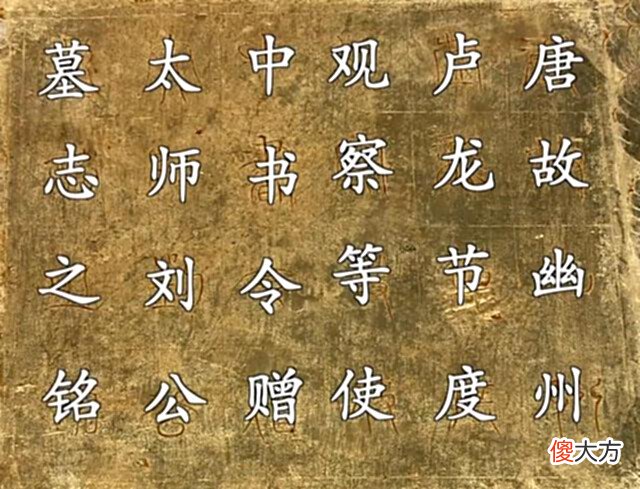 唐故幽州
卢龙节度
观察等使
中书令赠
太师刘公
墓志之铭
傻大方